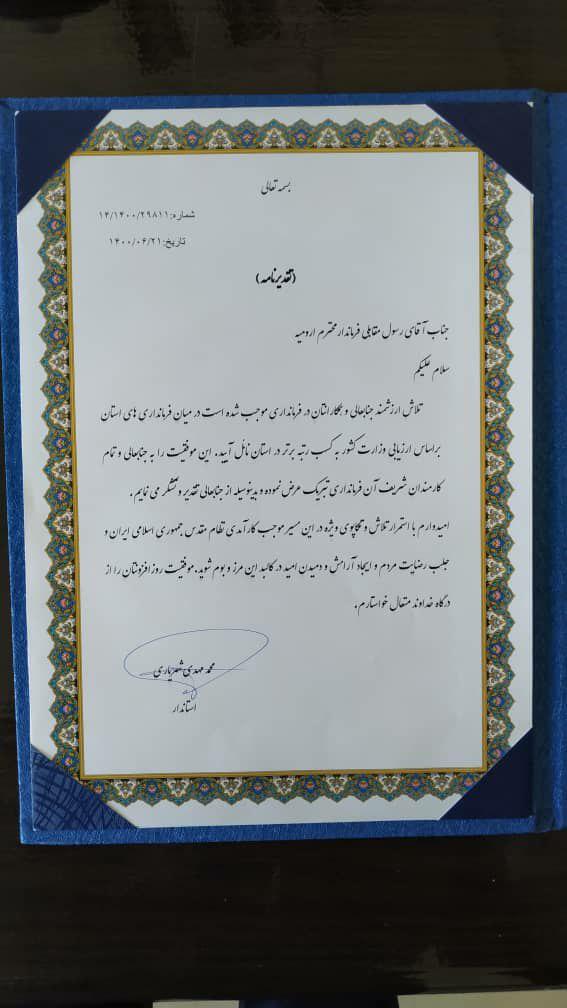 بسمه تعالی
شماره: ۱۴/۱۴۰۰/۲۹۸۱۱
تاریخ: ۱۴۰۰/۰۶/۲۱
(تقدیرنامه)
جناب آقای رسول مقابلی فرماندار محترم ارومیه
سلام علیکم
تلاش ارزشمند جنابعالی و همکارانتان در فرمانداری موجب شده است در میان فرمانداری های استان
براساس ارزیابی وزارت کشور به کسب رتبه برتر در استان نائل آیید. این موفقیت را به جنابعالی و تمام
کارمندان شریف آن فرمانداری تبریک عرض نموده و بدینوسیله از جنابعالی تقدیر و تشکر می نمایم.
امیدوارم با استمرار تلاش و تکاپوی ویژه در این مسیر موجب کارآمدی نظام مقدس جمهوری اسلامی ایران و
جلب رضایت مردم و ایجاد آرامش و دمیدن امید در کالبد این مرز و بوم شوید. موفقیت روز افزونتان را از
درگاه خداوند متعال خواستارم.
محمد مهدی شهریاری
استاندار